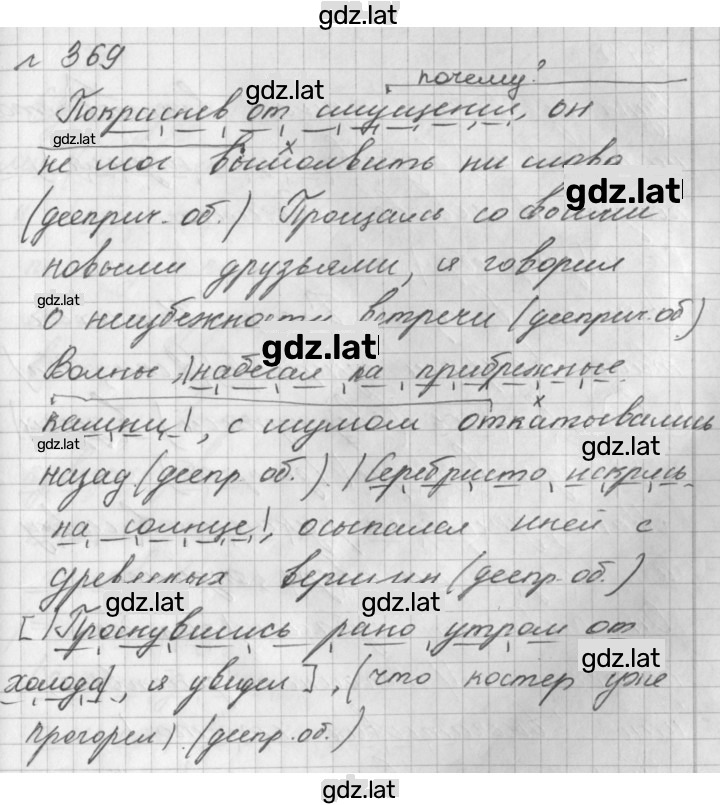 gdz.lat
№ 369
почему?
gdz.lat
Покраснев от смущения, он
gdz.lat
не мог вымолвить ни слова
gdz.lat
(дееприч. об.) Прощаясь со своими
новыми друзьями, я говорил
gdz.lat
о неизбежности встречи (дееприч. об)
gdz.lat
Волны, |набегая на прибрежные
камни|, с шумом откатывались
gdz.lat
gdz.lat
назад (деепр. об.) |Серебристо искрясь
на солнце|, осыпался иней с
древесных вершин (деепр. об.)
gdz.lat
gdz.lat
[|Проснувшись рано утром от
gdz.lat
холода|, я увидел], (что костер уже
прогорел). (деепр. об.)
gdz.lat